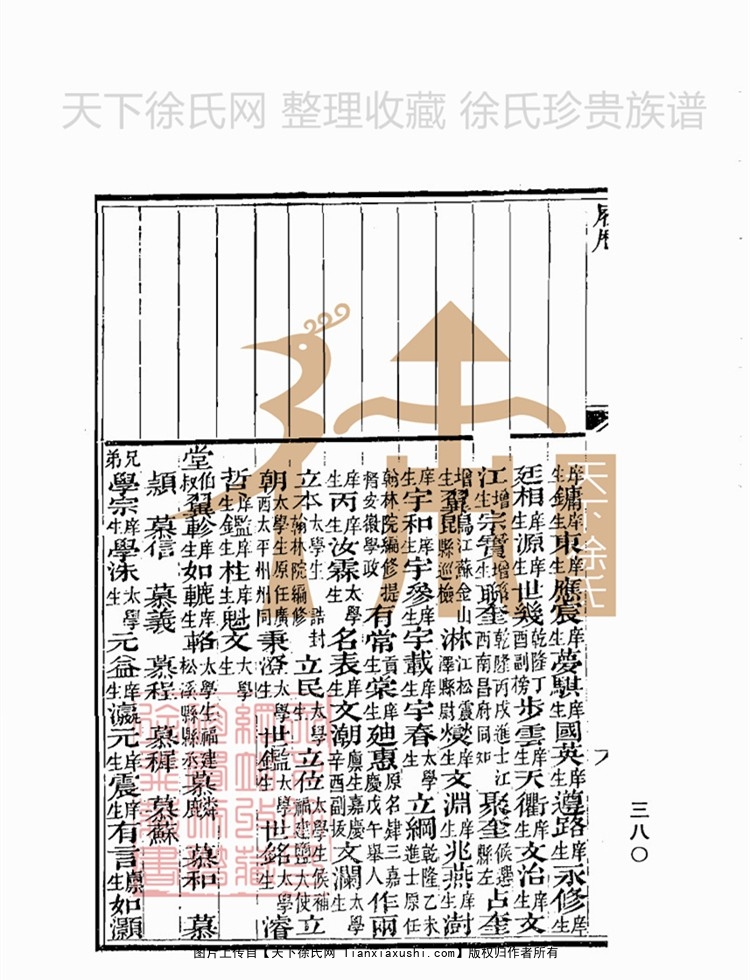 天下徐氏网 整理收藏 徐氏珍贵族谱
庠生鏞庠生東庠生應震庠生夢騏庠生國英庠生遵路庠生永修庠生
廷相庠生源庠生世幾乾隆丁酉副榜步雲庠生天衢庠生文治庠生文
江增生宗寶增生聯奎乾隆丙戌進士江西南昌府同知聚奎候選縣左占奎
增生翼鵾江蘇金山縣巡檢淋江松震澤縣尉燮庠生文淵庠生兆燕庠生澍
庠生宇和庠生宇參庠生宇載庠生宇春太學生立綱乾隆乙未進士原任
翰林院編修提督安徽學政有常貢生棠庠生廸惠原名肆三嘉慶戊午舉人作兩
庠生丙庠生汝霖太學生名表庠生文潮廩生嘉慶辛酉副拔文瀾太學生
立本太學生誥封翰林院編修立民太學生立位太學生候補福建鹽大使立
朝太學生原任廣西太平州州同秉澄太學生世鑑太學生世銘太學生濬
哲庠生鑑庠生柱庠生魁文太學生
堂伯叔翼軫庠生如轆庠生輅太學生福建松溪縣縣丞慕麟 慕鹿 慕和 慕
顥 慕信 慕義 慕程 慕穉 慕蘇
兄弟學宗庠生學洙太學生元益庠生瀛元庠生震庠生有言廪生如灝
三八〇
天下徐氏
图片上传自【天下徐氏网 tianxiaxushi.com】版权归作者所有